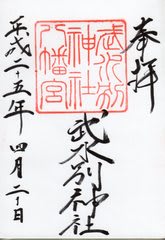 奉拝
武水別神社
八幡宮
武水別神社
平成二十五年四月二十日